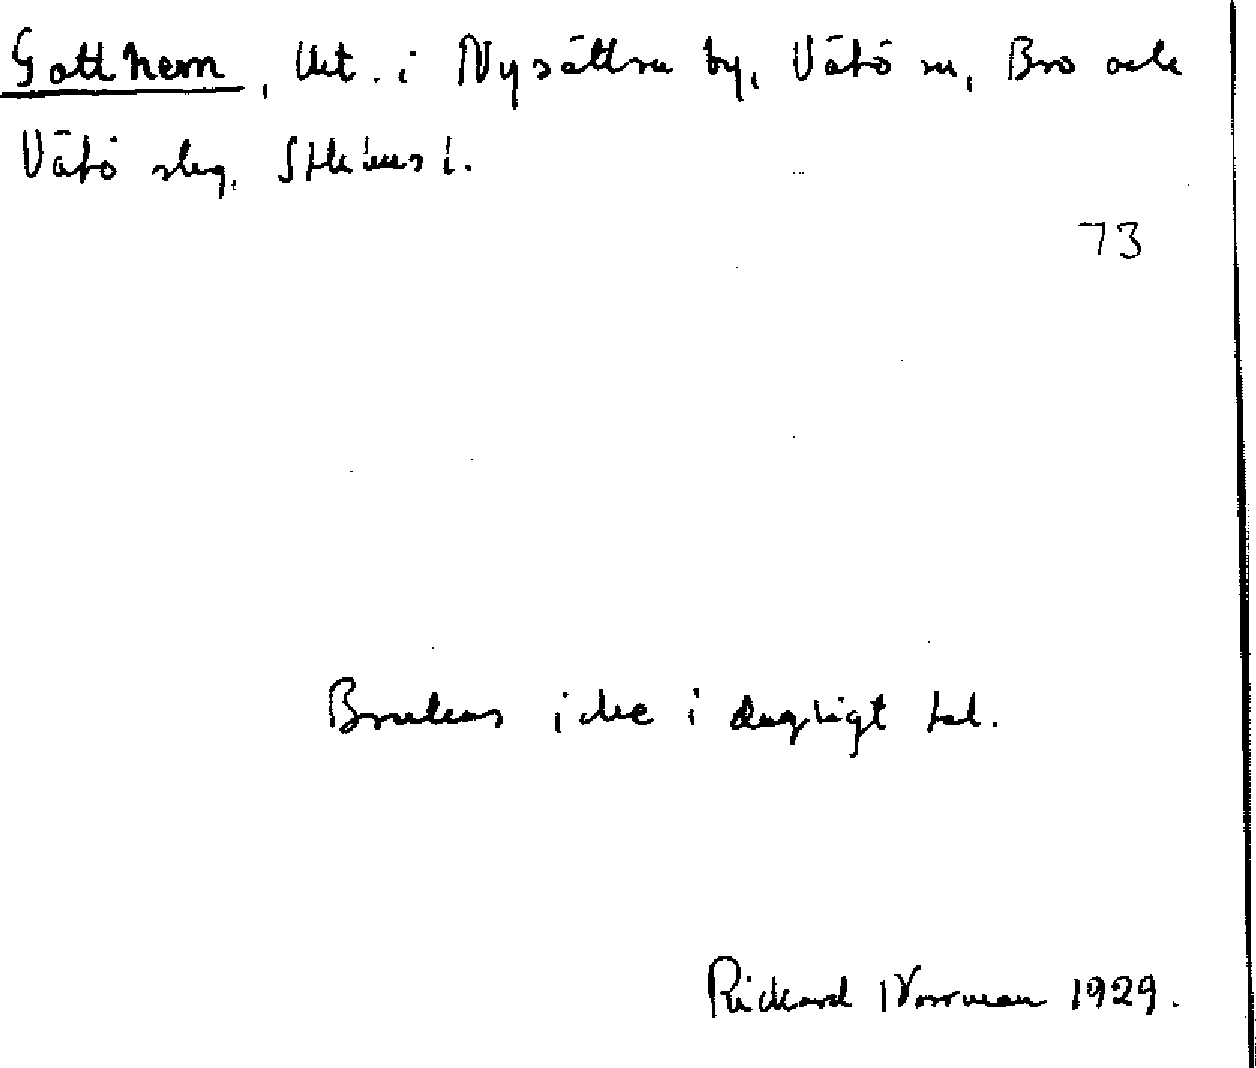 Gotthem, Ut. i Nysättra by, Vätö sn, Bro och
Vätö slg, Sthlms l.
73
Brukas icke i dagligt tal.
Rickard Norrman 1929.